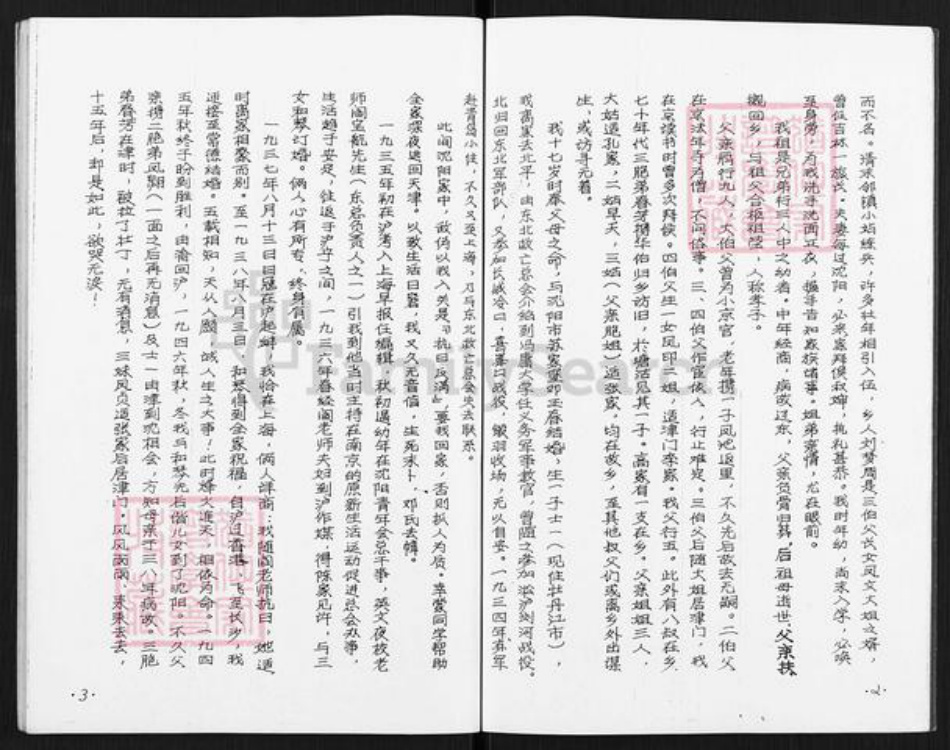 而不名。清末邻镇小站练兵，许多壮年相引入伍，乡人刘梦周是三伯父长女凤文大姐之婿，
曾任吉林一旅长。夫妻每过沈阳，必来寓拜候叔婶，执礼甚恭。我时年幼，尚未入学，必唤
至身旁，为我洗手洗面正衣，握手告知家族诸事。姐弟亲情，尤在眼前。
我祖是兄弟行三人中之幼者。中年经商，病故辽东，父亲负骨归葬。后祖母逝世，父亲扶
榇回乡，与祖父合柩祖茔，人称孝子。
父亲胞行九人，大伯父曾为小京官，老年携一子凤池返里，不久先后故去无嗣。二伯父
在京法年寺为僧，不问俗事。三、四伯父作官依人，行止难定。三伯父后随大姐居津门，我
在京读书时曾多次拜候。四伯父生一女凤印二姐，适津门李家。我父行五。此外有八叔在乡，
七十年代三胞弟春芳携华伯归乡访旧，于塘沽见其一子。高家有一支在乡。父亲姐姐三人，
大姑适孔家，二姑早夭，三姑（父亲胞姐）适张家，均在故乡，至其他叔父们或离乡外出谋
生，或访寻无着。
我十七岁时奉父母之命，与沈阳市苏家堡邓玉春结婚，生一子士一（现住牡丹江市），
我离家去北平，由东北救亡总会介绍到冯庸大学任义务军事教官，曾随之参加淞沪浏河战役。
北归回东北军部队，又参加长城冷口，喜峰口战役，铩羽收场，无以自安。一九三四年弃军
赴青岛小住，不久又至上海，乃与东北救亡总会失去联系。
此间沈阳家中，敌伪以我入关是「抗日反满」要我回家，否则拟人为质。幸蒙同学帮助
全家深夜逃回天津。以致生活日窘，我又久无音信，生死未卜，邓氏去帏。
一九三五年初在沪考入上海早报任编辑，秋初遇幼年在沈阳青年会总干事，英文夜校老
师阎宝航先生（东总负责人之一）引我到他当时主持在南京的原新生活运动促进总会办事，
生活趋于安定，往返于沪宁之间，一九三六年春经阎老师夫妇到沪作媒，得陈家见许，与三
女和琴订婚。俩人心有所专，终身有属。
一九三七年八月十三日日寇在沪起衅，我恰在上海，俩人泮面：我随阎老师抗日，她适
时离家相聚而别。至一九三八年八月三日，和琴得到全家祝福，自沪过香港，飞至长沙，我
迎接至常德结婚。五载相知，天从人愿，诚人生之大事！此时烽火连天，相依为命。一九四
五年秋终于盼到胜利，由渝回沪，一九四六年秋，冬我与和琴先后偕儿女到了沈阳。不久父
亲携二胞弟凤翱（一面之后再无消息）及士一由津到沈相会，方知母亲于三八年病故。三胞
弟春芳在津时，被拉了壮丁，无有消息，三妹凤贞适张家后居津门。风风雨雨，来来去去，
十五年后，却是如此，欲哭无泪！
·2·
·3·
FamilySearch